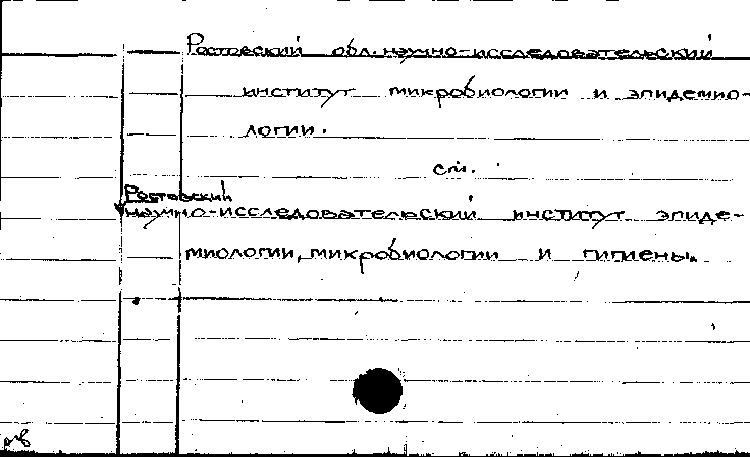 Ростовский обл. научно-исследовательский
институт микробиологии и эпидемио-
логии.
см.
Ростовский
научно-исследовательский институт эпиде-
миологии, микробиологии и гигиены.